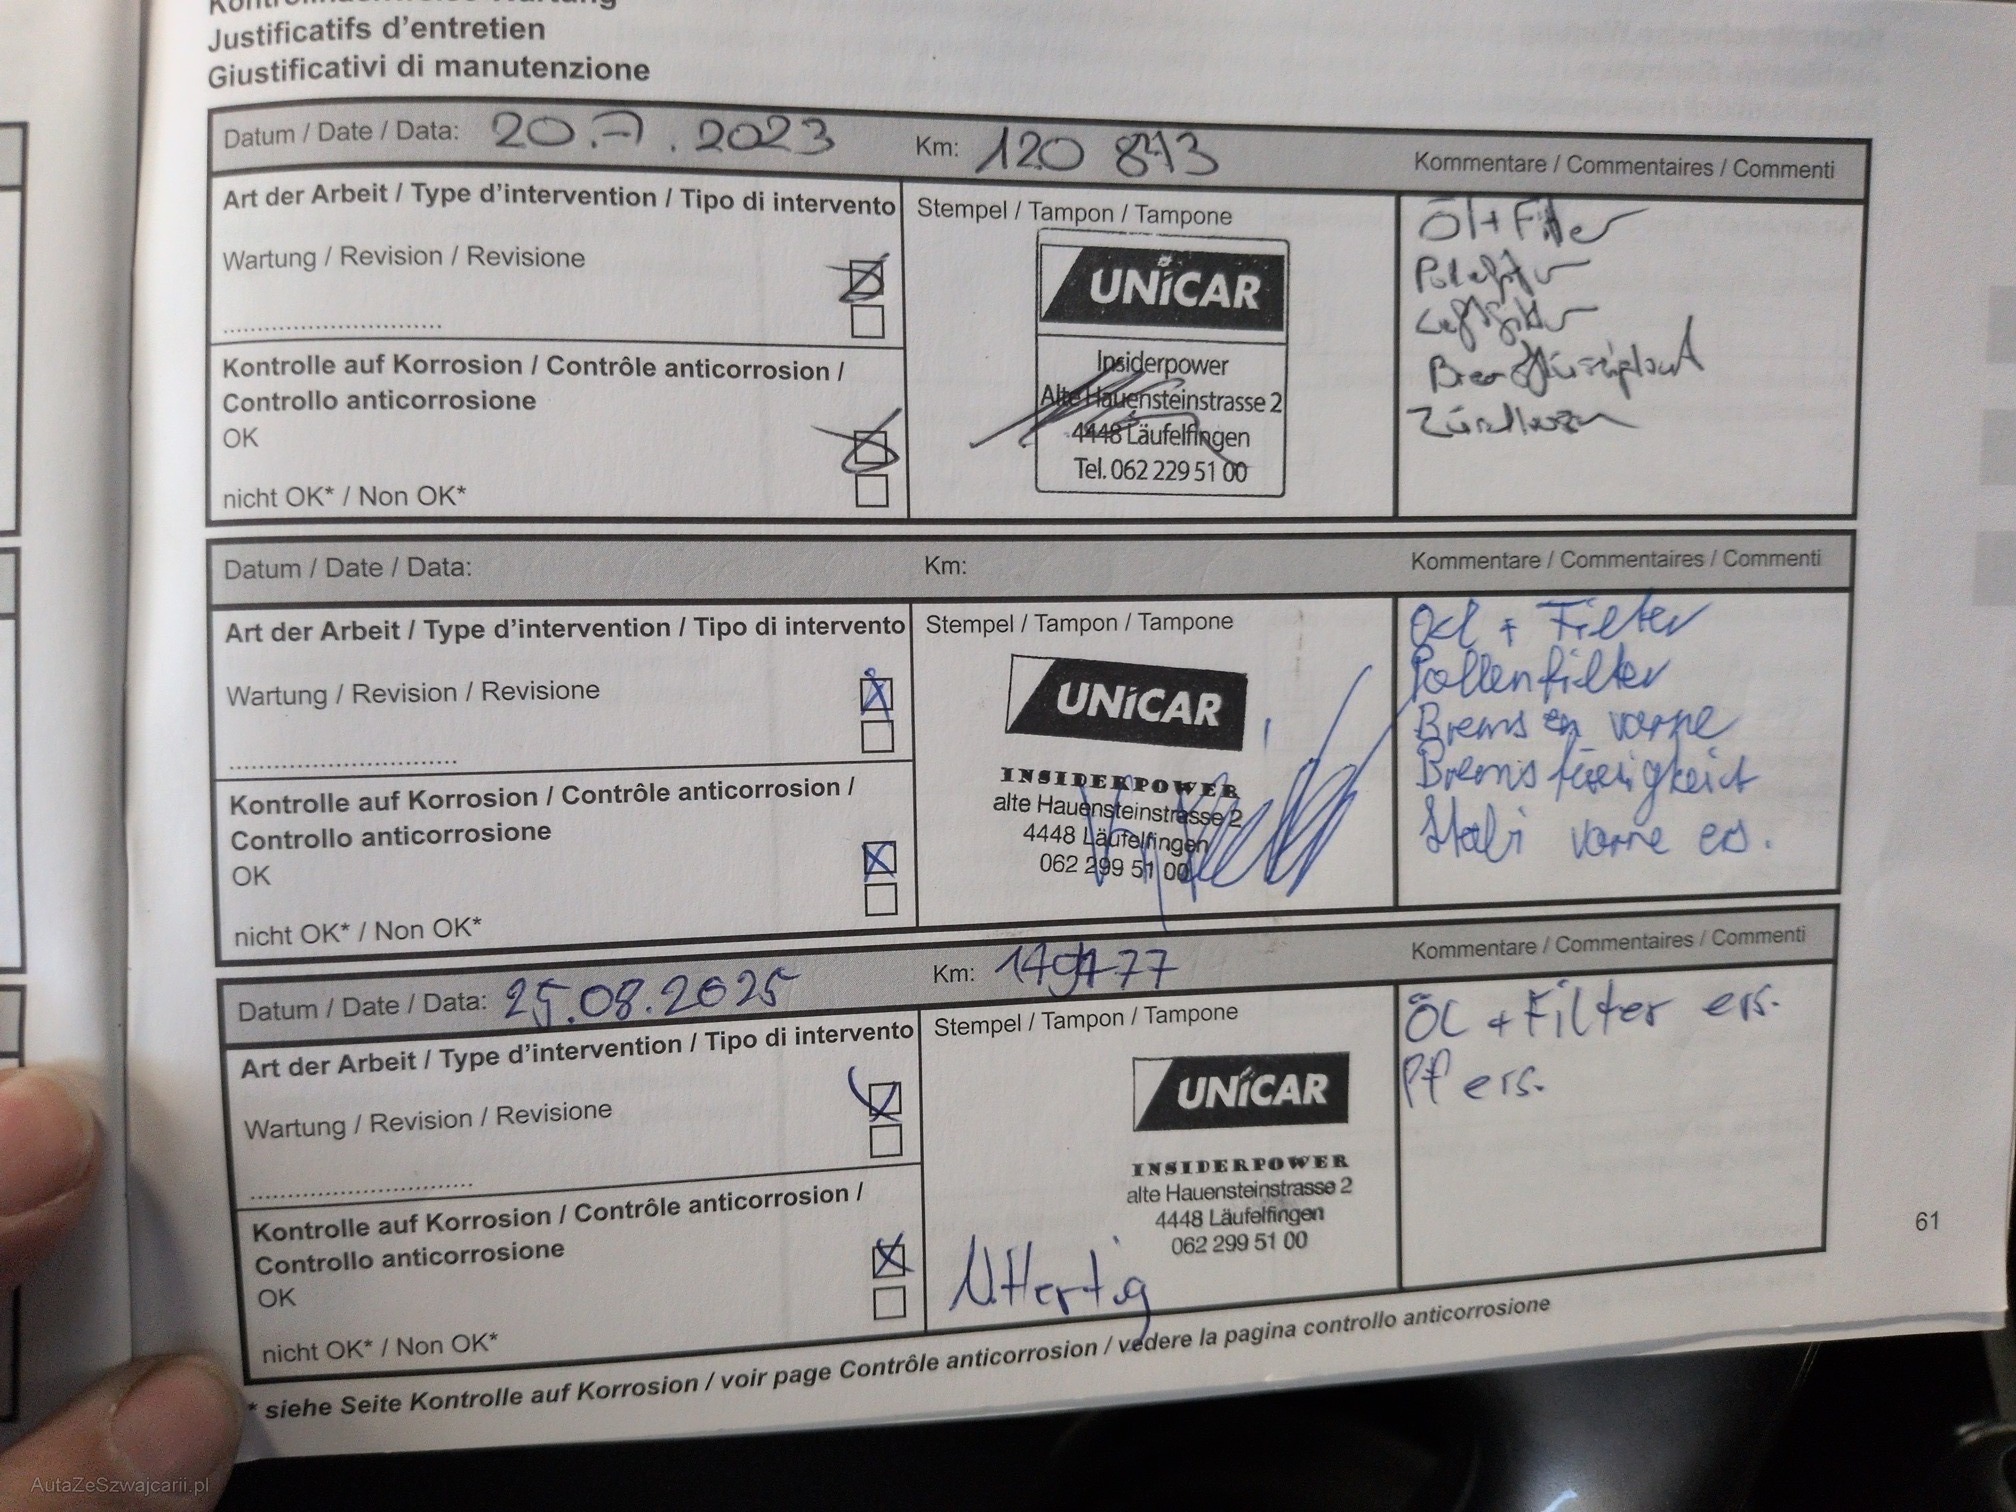 Justificatifs d'entretien
Giustificativi di manutenzione
Datum / Date / Data: 20.7.2023 Km: 120 873 Kommentare / Commentaires / Commenti
Art der Arbeit / Type d'intervention / Tipo di intervento
Stempel / Tampon / Tampone
Wartung / Revision / Revisione
Kontrolle auf Korrosion / Contrôle anticorrosion /
Controllo anticorrosione
OK
nicht OK* / Non OK*
UNiCAR
Insiderpower
Alte Hauensteinstrasse 2
4448 Läufelfingen
Tel. 062 229 51 00
Öl + Filter
Luftfilter
Datum / Date / Data: Km: Kommentare / Commentaires / Commenti
Art der Arbeit / Type d'intervention / Tipo di intervento
Stempel / Tampon / Tampone
Wartung / Revision / Revisione
Kontrolle auf Korrosion / Contrôle anticorrosion /
Controllo anticorrosione
OK
nicht OK* / Non OK*
UNiCAR
INSIDERPOWER
alte Hauensteinstrasse 2
4448 Läufelfingen
062 299 51 00
Oel + Filter
Pollenfilter
Bremsen vorne
Stabi vorne ers.
Datum / Date / Data: 25.08.2025 Km: Kommentare / Commentaires / Commenti
Art der Arbeit / Type d'intervention / Tipo di intervento
Stempel / Tampon / Tampone
Wartung / Revision / Revisione
Kontrolle auf Korrosion / Contrôle anticorrosion /
Controllo anticorrosione
OK
nicht OK* / Non OK*
UNiCAR
INSIDERPOWER
alte Hauensteinstrasse 2
4448 Läufelfingen
062 299 51 00
N.Hertig
Öl + Filter ers.
Pf ers.
61
* siehe Seite Kontrolle auf Korrosion / voir page Contrôle anticorrosion / vedere la pagina controllo anticorrosione
AutaZeSzwajcarii.pl